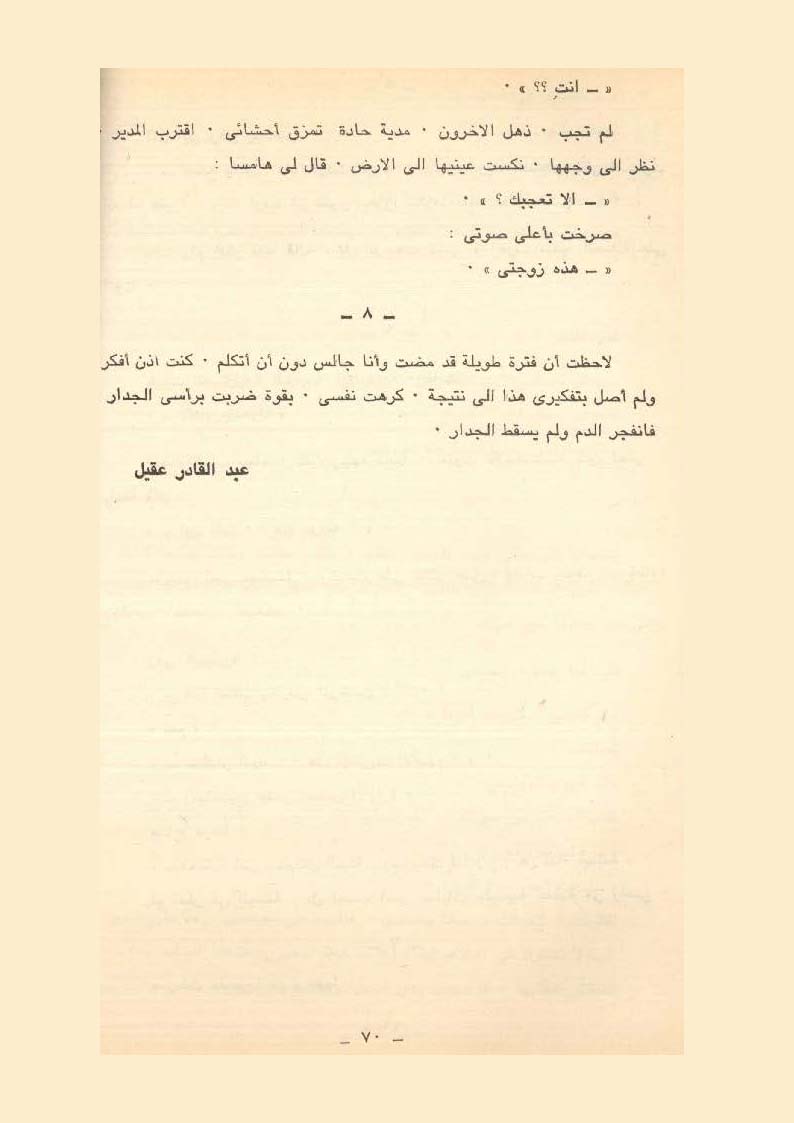 « ـ انتِ ؟؟ » ٠
لم تجب ٠ ذهل الاخرون ٠ مدية حادة تمزق أحشائى ٠ اقترب المدير ٠
نظر الى وجهها ٠ نكست عينيها الى الارض ٠ قال لى هامسا :
« ـ الا تعجبك ؟ » ٠
صرخت بأعلى صوتى :
« ـ هذه زوجتى » ٠
ـ ٨ ـ
لاحظت أن فترة طويلة قد مضت وأنا جالس دون أن أتكلم ٠ كنت اذن أفكر
ولم أصل بتفكيرى هذا الى نتيجة ٠ كرهت نفسى ٠ بقوة ضربت برأسى الجدار
فانفجر الدم ولم يسقط الجدار ٠
عبد القادر عقيل
ـ ٧٠ ـ